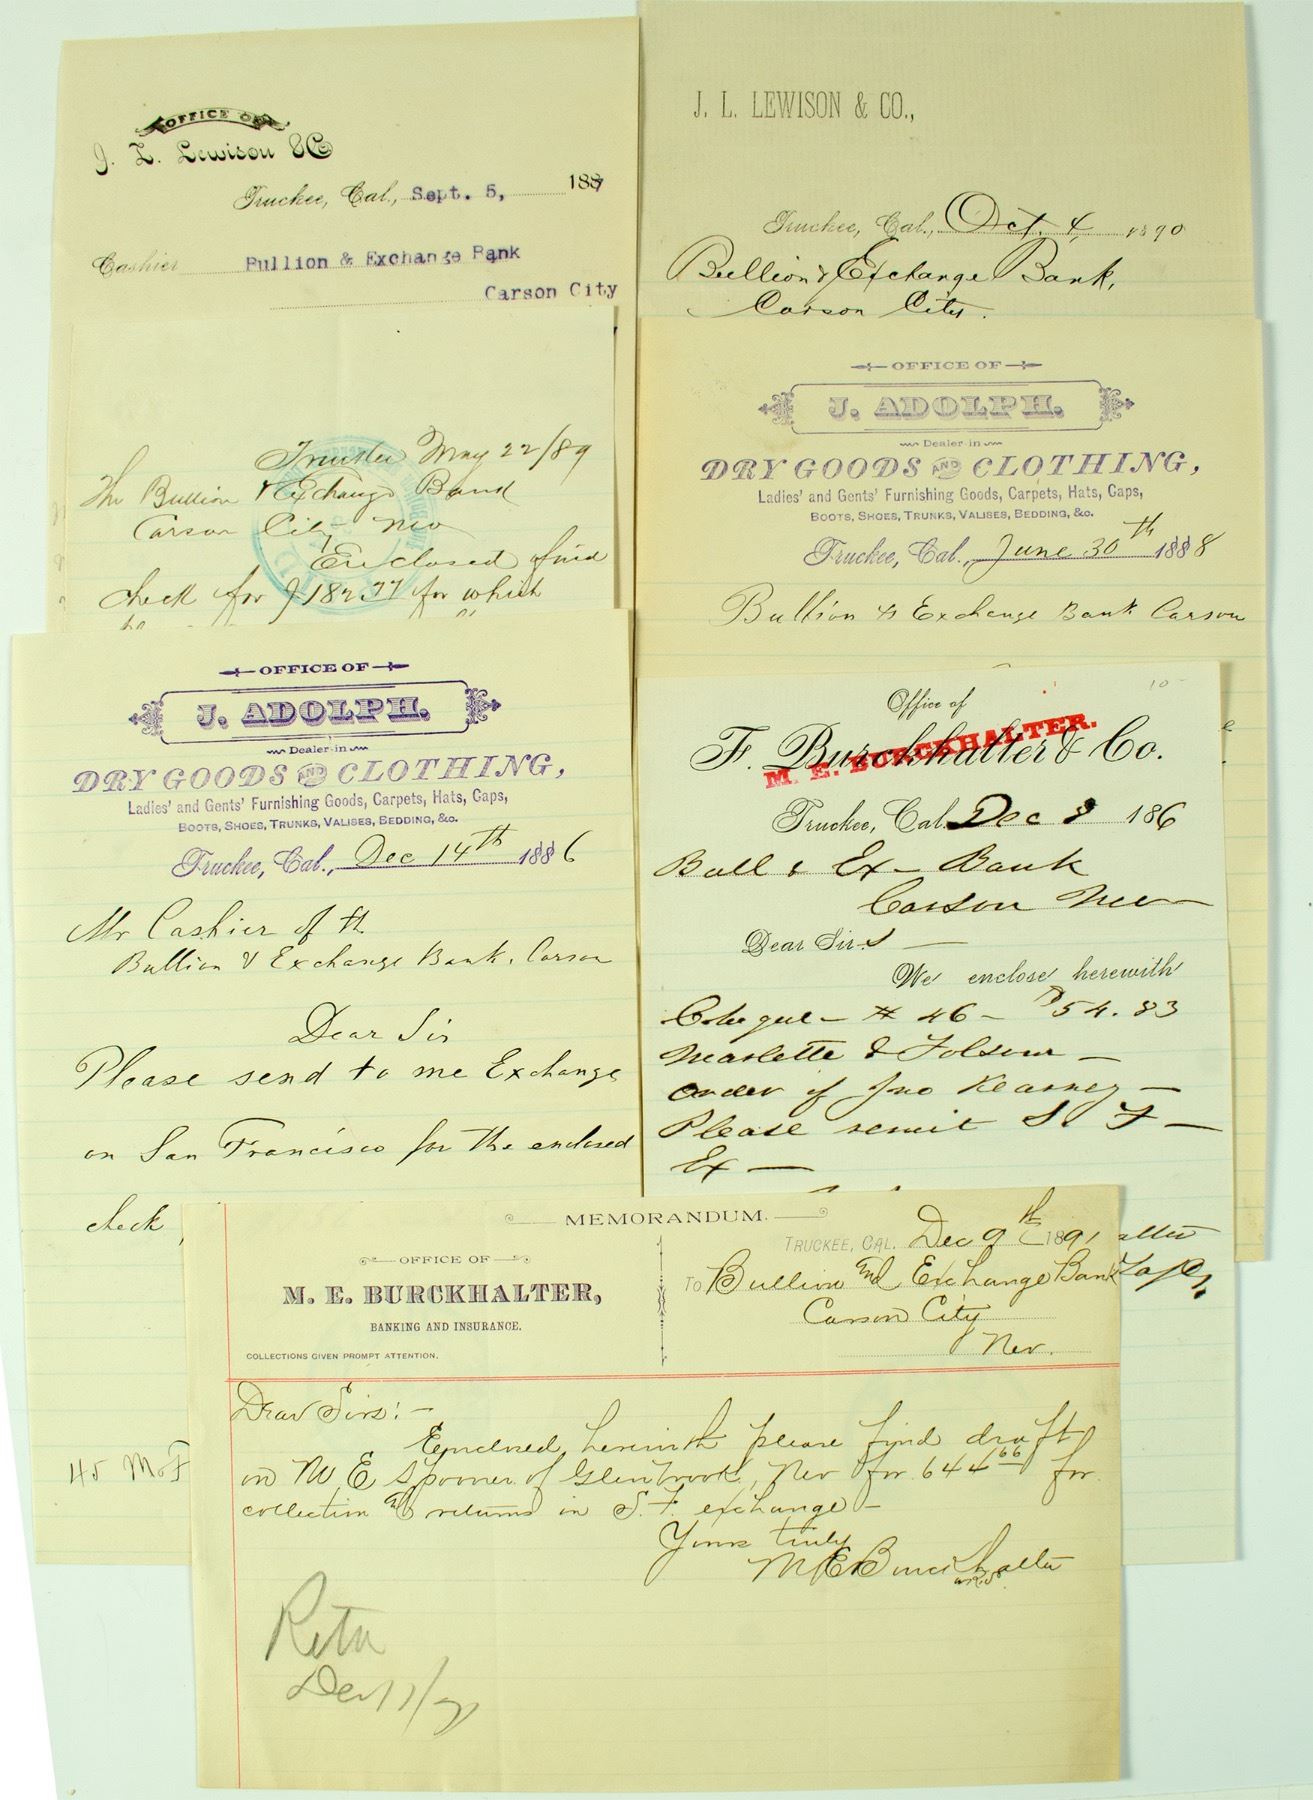 OFFICE OF
J. L. Lewison & Co
Truckee, Cal., Sept. 5, 1887
Cashier Bullion & Exchange Bank
Carson City
J. L. LEWISON & CO.,
Truckee, Cal., Oct. 4, 1890
Bullion & Exchange Bank,
Carson City.
Truckee May 22/89
The Bullion & Exchange Bank
Carson City Nev
Enclosed find
check for $182.77 for which
OFFICE OF
J. ADOLPH.
Dealer in
DRY GOODS AND CLOTHING,
Ladies' and Gents' Furnishing Goods, Carpets, Hats, Caps,
BOOTS, SHOES, TRUNKS, VALISES, BEDDING, &c.
Truckee, Cal., June 30th 1888
Bullion & Exchange Bank Carson
OFFICE OF
J. ADOLPH.
Dealer in
DRY GOODS AND CLOTHING,
Ladies' and Gents' Furnishing Goods, Carpets, Hats, Caps,
BOOTS, SHOES, TRUNKS, VALISES, BEDDING, &c.
Truckee, Cal., Dec 14th 1886
Mr Cashier of th
Bullion & Exchange Bank. Carson
Dear Sir
Please send to me Exchange
on San Francisco for the enclosed
check,
10-
Office of
F. Burckhalter & Co.
M. E. BURCKHALTER.
Truckee, Cal. Dec 8 186
Bull & Ex - Bank
Carson Nev
Dear Sirs
We enclose herewith
Cheque - # 46 - $54.83
Marlette & Folsom -
order of Jno Kearney -
Please remit S F -
Ex -
alter
MEMORANDUM.
OFFICE OF
M. E. BURCKHALTER,
BANKING AND INSURANCE.
COLLECTIONS GIVEN PROMPT ATTENTION.
TRUCKEE, CAL. Dec 9th 1891
To Bullion and Exchange Bank
Carson City
Nev.
Dear Sirs: -
Enclosed herewith please find draft
on M E Spooner of Glenbrook, Nev for 644 66 for
collection and returns in S. F. exchange -
Yours truly
M E Burckhalter